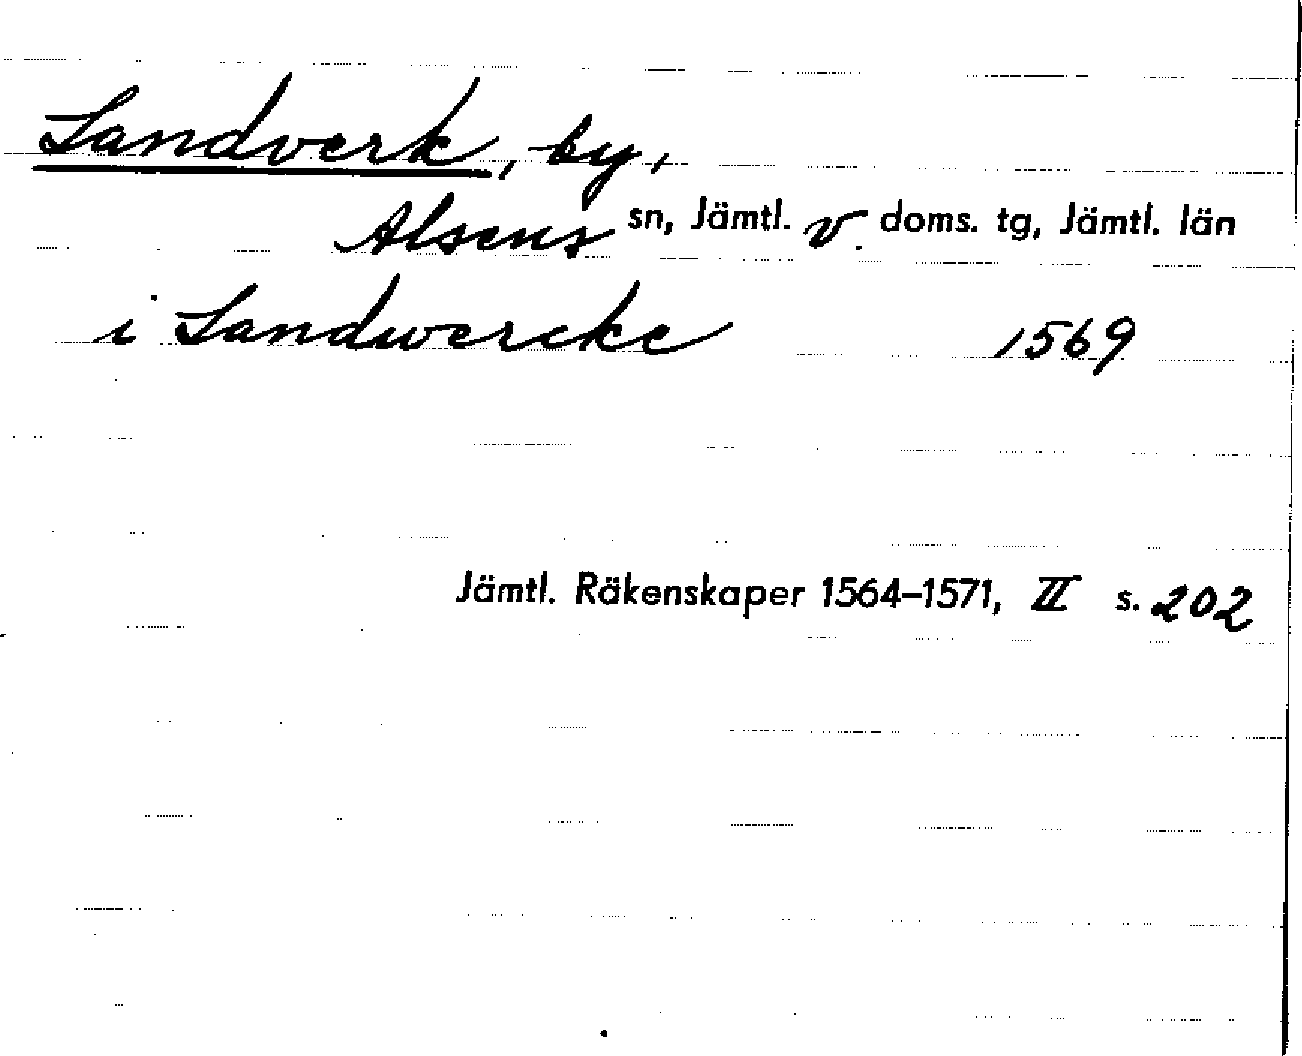 Landverk, by,
Alsens sn, Jämtl. v. doms. tg, Jämtl. län
i Landwercke 1569
Jämtl. Räkenskaper 1564–1571, II s. 202